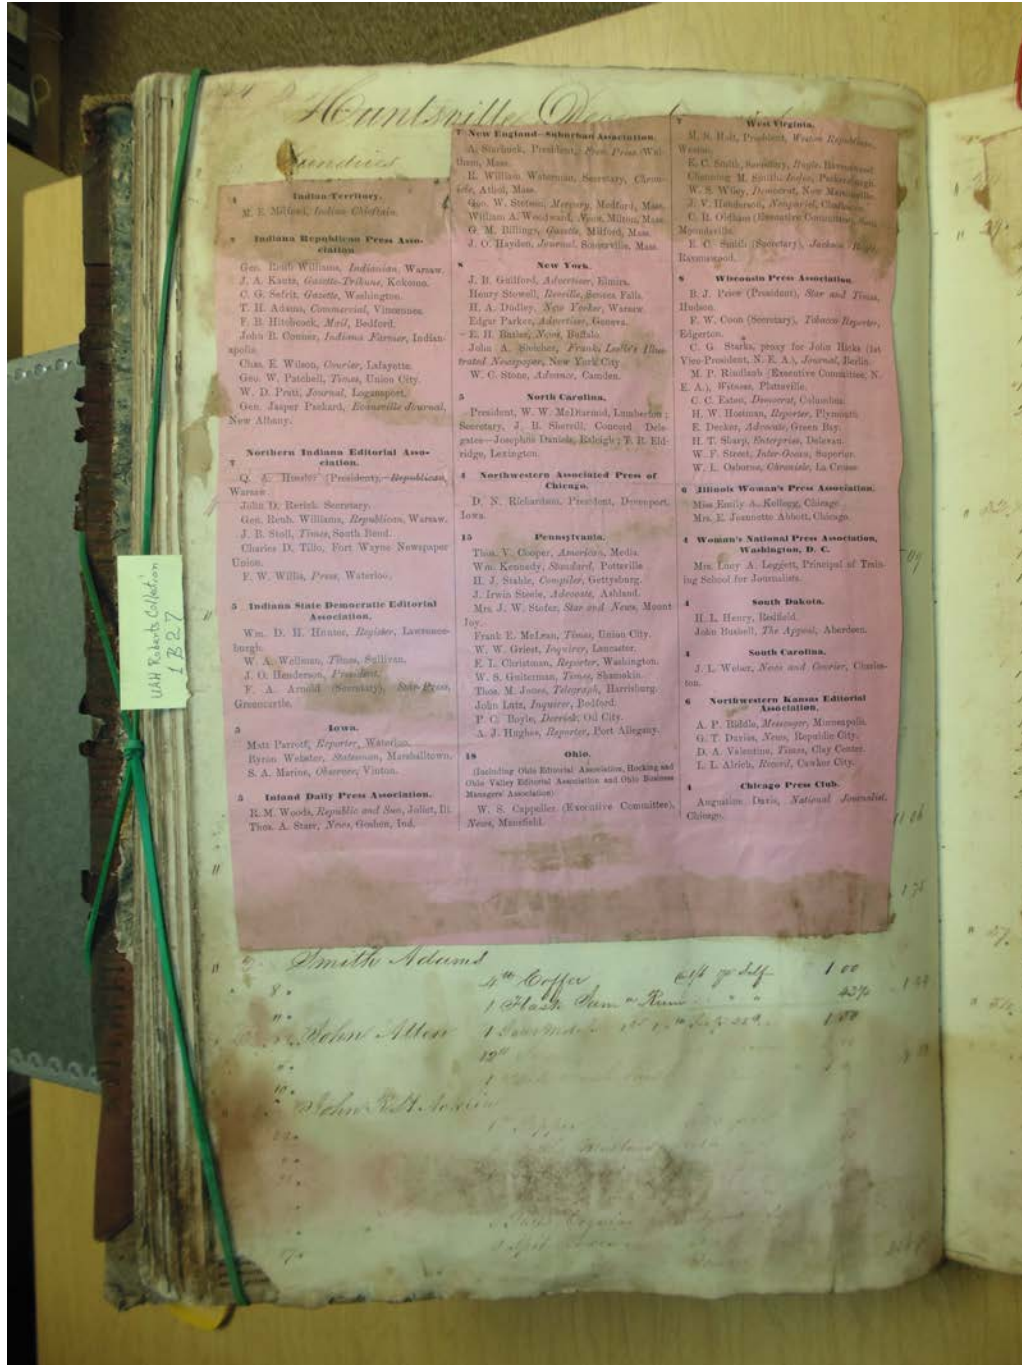 Huntsville
Sundries
1 Indian Territory.
M. E. Milford, Indian Chieftain.
7 Indiana Republican Press Asso-
ciation
Gen. Reub Williams, Indianian, Warsaw.
J. A. Kautz, Gazette-Tribune, Kokomo.
C. G. Sefrit, Gazette, Washington.
T. H. Adams, Commercial, Vincennes.
F. B. Hitchcock, Mail, Bedford.
John B. Conner, Indiana Farmer, Indian-
apolis.
Chas. E. Wilson, Courier, Lafayette.
Geo. W. Patchell, Times, Union City.
W. D. Pratt, Journal, Logansport.
Gen. Jasper Packard, Evansville Journal,
New Albany.
Northern Indiana Editorial Asso-
7 ciation.
Q. A. Hossler (President), Republican,
Warsaw.
John D. Rerick, Secretary.
Gen. Reub. Williams, Republican, Warsaw.
J. B. Stoll, Times, South Bend.
Charles D. Tillo, Fort Wayne Newspaper
Union.
F. W. Willis, Press, Waterloo.
5 Indiana State Democratic Editorial
Association.
Wm. D. H. Hunter, Register, Lawrence-
burgh.
W. A. Wellman, Times, Sullivan.
J. O. Henderson, President.
F. A. Arnold (Secretary), Star-Press,
Greencastle.
5 Iowa.
Matt Parrott, Reporter, Waterloo.
Byron Webster, Statesman, Marshalltown.
S. A. Marine, Observer, Vinton.
5 Inland Daily Press Association.
R. M. Woods, Republic and Sun, Joliet, Ill.
Thos. A. Starr, News, Goshen, Ind.
7 New England—Suburban Association.
A. Starbuck, President, Free Press, Wal-
tham, Mass.
R. William Waterman, Secretary, Chron-
icle, Athol, Mass.
Geo. W. Stetson, Mercury, Medford, Mass.
William A. Woodward, News, Milton, Mass.
G. M. Billings, Gazette, Milford, Mass.
J. O. Hayden, Journal, Somerville, Mass.
8 New York.
J. B. Guilford, Advertiser, Elmira.
Henry Stowell, Reveille, Seneca Falls.
H. A. Dudley, New Yorker, Warsaw.
Edgar Parker, Advertiser, Geneva.
E. H. Butler, News, Buffalo.
John A. Sleicher, Frank Leslie's Illus-
trated Newspaper, New York City.
W. C. Stone, Advance, Camden.
5 North Carolina.
President, W. W. McDiarmid, Lumberton;
Secretary, J. B. Sherrill, Concord Dele-
gates—Josephus Daniels, Raleigh; T. B. Eld-
ridge, Lexington.
4 Northwestern Associated Press of
Chicago.
D. N. Richardson, President, Davenport,
Iowa.
15 Pennsylvania.
Thos. V. Cooper, American, Media.
Wm. Kennedy, Standard, Pottsville
H. J. Stahle, Compiler, Gettysburg.
J. Irwin Steele, Advocate, Ashland.
Mrs. J. W. Stofer, Star and News, Mount
Joy.
Frank E. McLean, Times, Union City.
W. W. Griest, Inquirer, Lancaster.
E. L. Christman, Reporter, Washington.
W. S. Guiterman, Times, Shamokin.
Thos. M. Jones, Telegraph, Harrisburg.
John Lutz, Inquirer, Bedford.
P. C. Boyle, Derrick, Oil City.
A. J. Hughes, Reporter, Port Allegany.
18 Ohio.
(Including Ohio Editorial Association, Hocking and
Ohio Valley Editorial Association and Ohio Business
Managers' Association)
W. S. Cappeller (Executive Committee),
News, Mansfield.
7 West Virginia.
M. S. Holt, President, Weston Republican,
Weston.
E. C. Smith, Secretary, Bugle, Ravenswood
Channing M. Smith, Index, Parkersburg.
W. S. Wiley, Democrat, New Martinsville.
J. V. Henderson, Nonpareil,
C. B. Oldham (Executive Committee),
Moundsville.
E. C. Smith (Secretary), Jackson Bugle,
Ravenswood.
8 Wisconsin Press Association.
B. J. Price (President), Star and Times,
Hudson.
F. W. Coon (Secretary), Tobacco Reporter,
Edgerton.
C. G. Starks, proxy for John Hicks (1st
Vice-President, N. E. A.), Journal, Berlin.
M. P. Rindlaub (Executive Committee, N.
E. A.), Witness, Platteville.
C. C. Eaton, Democrat, Columbus.
H. W. Hostman, Reporter, Plymouth.
E. Decker, Advocate, Green Bay.
H. T. Sharp, Enterprise, Delavan.
W. F. Street, Inter-Ocean, Superior.
W. L. Osborne, Chronicle, La Crosse.
6 Illinois Woman's Press Association.
Miss Emily A. Kellogg, Chicago.
Mrs. E. Jeannette Abbott, Chicago.
4 Woman's National Press Association,
Washington, D. C.
Mrs. Lucy A. Leggett, Principal of Train-
ing School for Journalists.
4 South Dakota.
H. L. Henry, Redfield.
John Bushell, The Appeal, Aberdeen.
4 South Carolina.
J. L. Weber, News and Courier, Charles-
ton.
6 Northwestern Kansas Editorial
Association.
A. P. Riddle, Messenger, Minneapolis.
G. T. Davies, News, Republic City.
D. A. Valentine, Times, Clay Center.
L. L. Alrich, Record, Cawker City.
4 Chicago Press Club.
Augustine Davis, National Journalist,
Chicago.
UAH Roberts Collection
1 B27
Smith Adams
8 4 lb Coffee 1 00
1 Flask Rum
John Allen 1 1.50
12
John R. H.